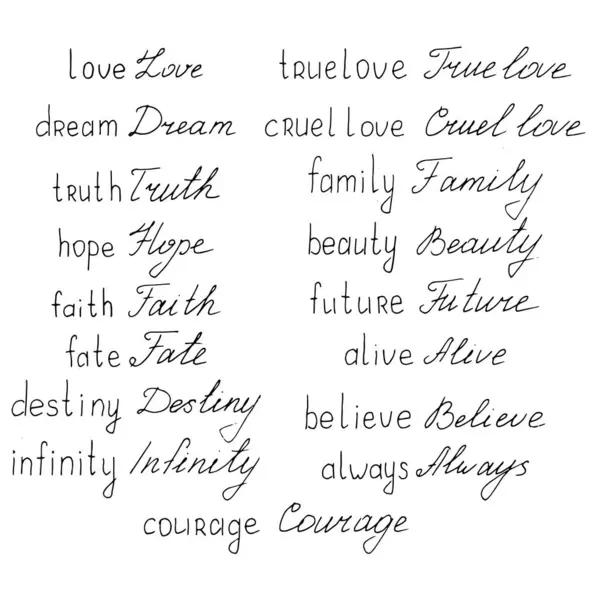 love Love
true love True love
dream Dream
cruel love Cruel love
truth Truth
family Family
hope Hope
beauty Beauty
faith Faith
future Future
fate Fate
alive Alive
destiny Destiny
believe Believe
infinity Infinity
always Always
courage Courage